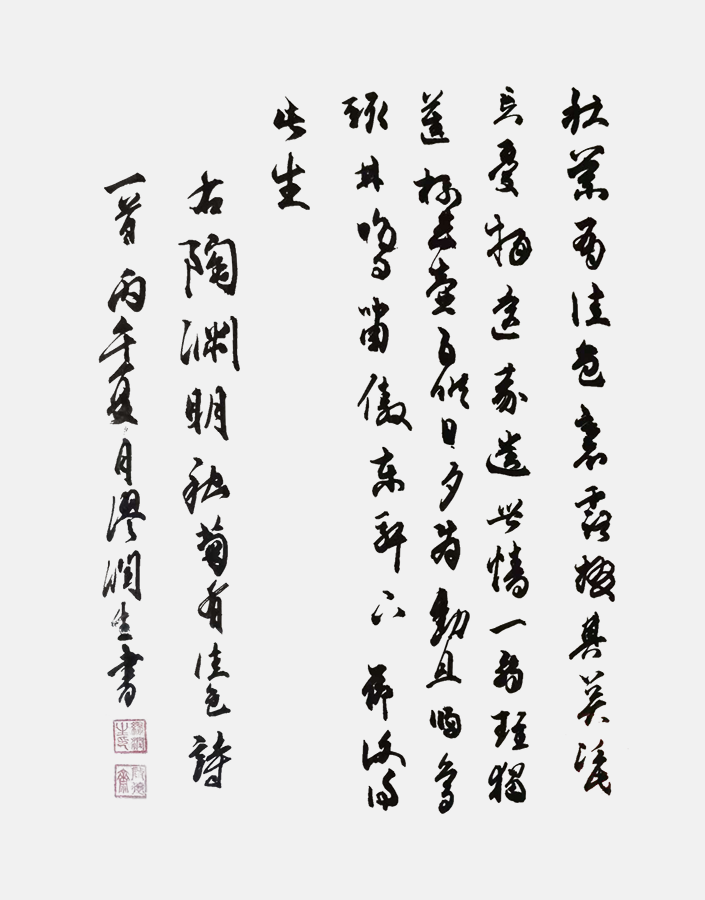 秋菊有佳色裛露掇其英泛此
忘憂物遠我遺世情一觴雖獨
進杯盡壺自傾日入群動息歸鳥
趨林鳴嘯傲東軒下聊復得
此生
右陶渊明秋菊有佳色詩
一首丙午夏月繆潤生書